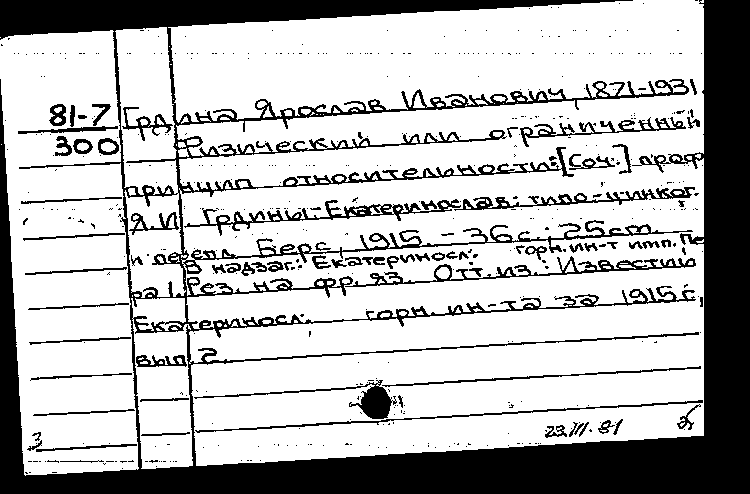 81-7 Грдина, Ярослав Иванович, 1871-1931.
300 Физический или ограниченный
принцип относительности: [Соч.] проф
Я.И. Грдины.-Екатеринослав: типо-цинког.
и перепл. Берс, 1915. - 36 с.; 25 cm.
В надзаг.: Екатериносл. горн. ин-т имп. Пе
ра I. Рез. на фр. яз. Отт. из.: Известий
Екатериносл. горн. ин-та за 1915 г.,
вып. 2.
3 23.III.81